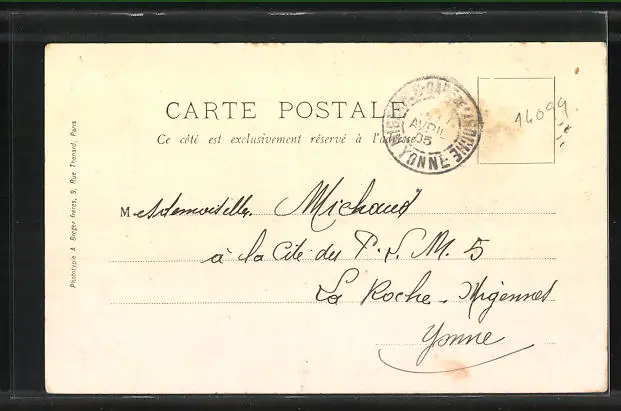 CARTE POSTALE
Ce côté est exclusivement réservé à l'adresse
AVRIL
05
YONNE
14099
Mademoiselle Michaud
à la Cité du P. L. M. 5
La Roche - Migennes
Yonne
Phototypie A Breger Frères, 9, Rue Thenard, Paris